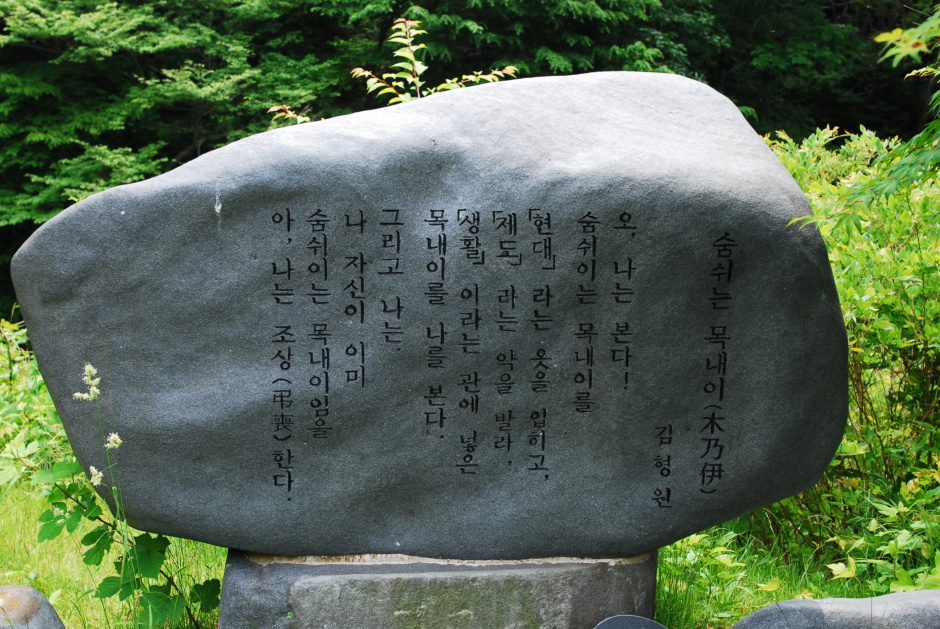 숨쉬는 목내이(木乃伊)
김형원
오, 나는 본다!
숨쉬이는 목내이를
「현대」라는 옷을 입히고,
「제도」라는 약을 발라,
「생활」이라는 관에 넣은
목내이를 나를 본다.
그리고 나는.
나 자신이 이미
숨쉬이는 목내이임을
아, 나는 조상(弔喪)한다.